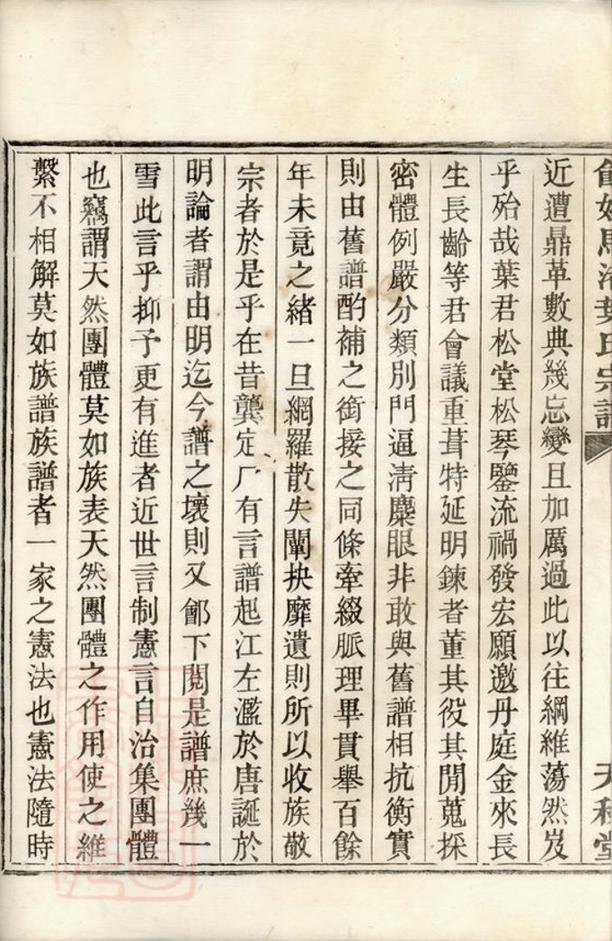 近遭鼎革數典幾忘變且加厲過此以往綱維蕩然岌
乎殆哉葉君松堂松琴鑒流禍發宏願邀丹庭金來長
生長齡等君會議重葺特延明鍊者董其役其閒蒐採
密體例嚴分類別門逼淸麋眼非敢與舊譜相抗衡實
則由舊譜酌補之銜接之同條牽綴脈理畢貫舉百餘
年未竟之緒一旦網羅散失闡抉靡遺則所以收族敬
宗者於是乎在昔龔定厂有言譜起江左濫於唐誕於
明論者謂由明迄今譜之壞則又鄶下閱是譜庶幾一
雪此言乎抑予更有進者近世言制憲言自治集團體
也竊謂天然團體莫如族表天然團體之作用使之維
繫不相解莫如族譜族譜者一家之憲法也憲法隨時